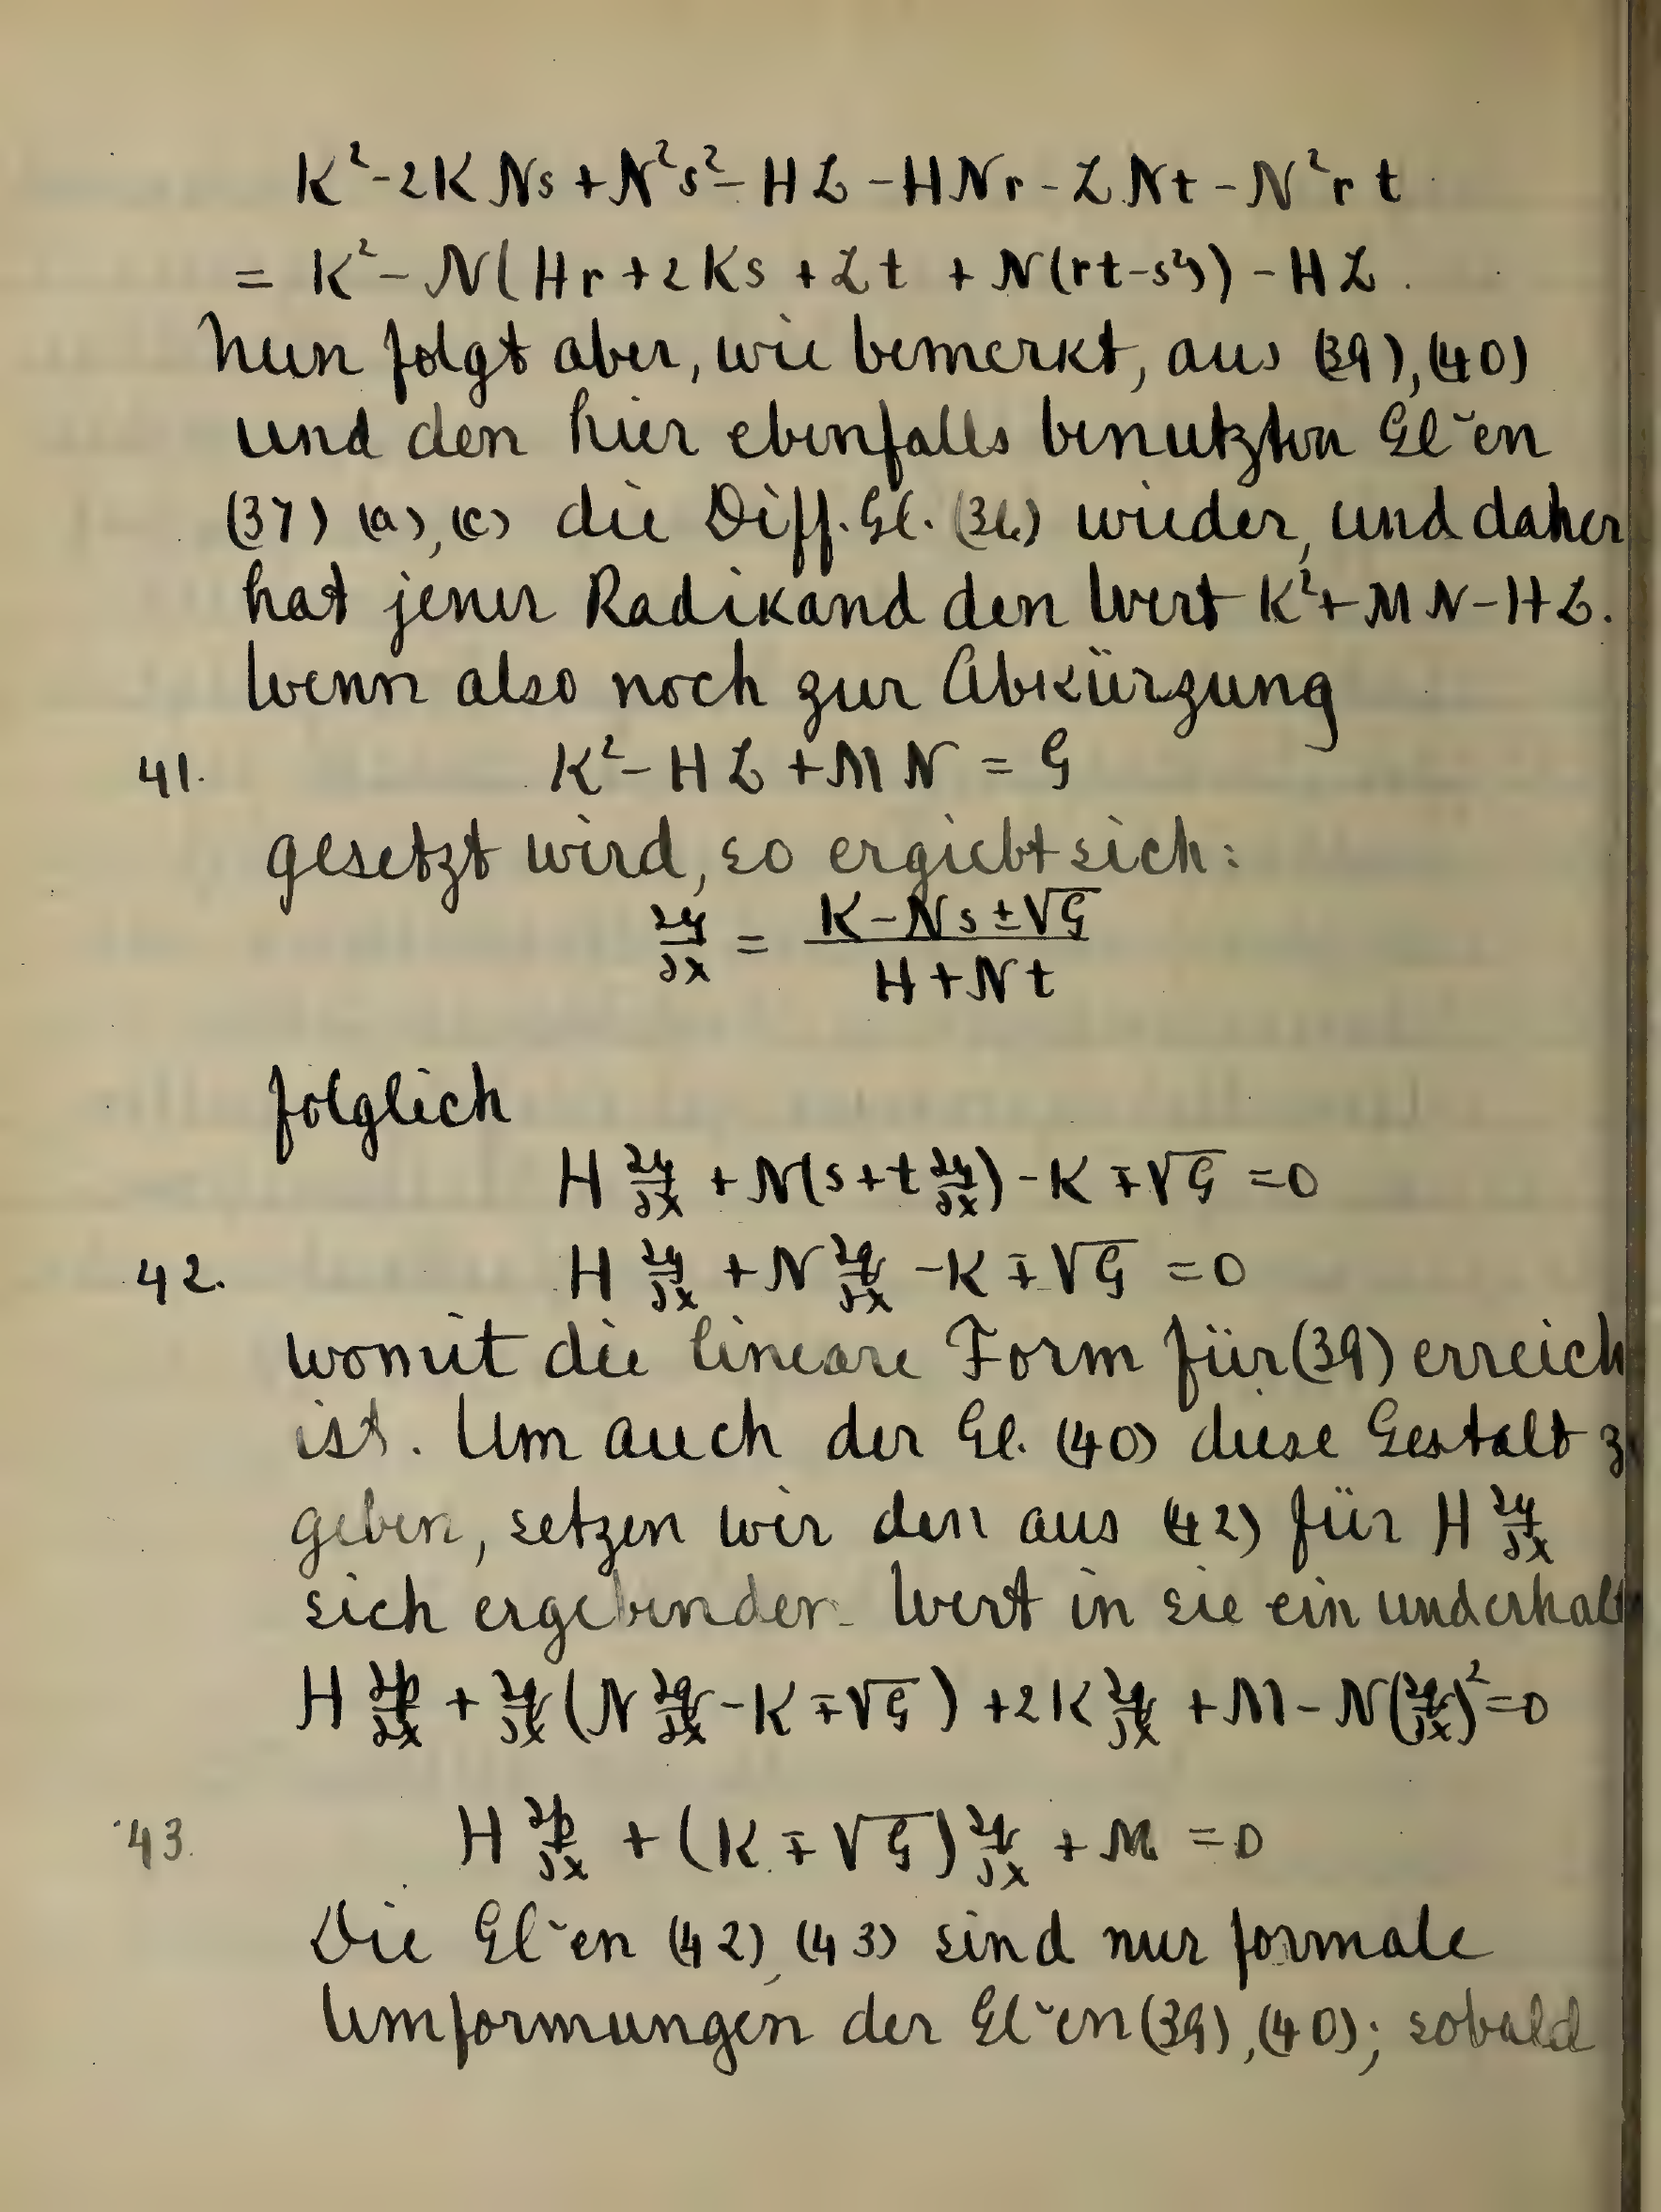 K² - 2KNs + N²s² - HL - HNr - LNt - N²rt
= K² - N(Hr + 2Ks + Lt + N(rt-s²)) - HL.
Nun folgt aber, wie bemerkt, aus (39), (40)
und den hier ebenfalls benutzten Gl˘en
(37) (a), (c) die Diff. Gl. (36) wieder, und daher
hat jener Radikand den Wert K² + MN - HL.
Wenn also noch zur Abkürzung
41. K² - HL + MN = G
gesetzt wird, so ergiebt sich:
∂y/∂x = (K - Ns ± √G)/(H + Nt)
folglich
H ∂y/∂x + N(s + t ∂y/∂x) - K ∓ √G = 0
42. H ∂y/∂x + N ∂q/∂x - K ∓ √G = 0
womit die lineare Form für (39) erreich
ist. Um auch der Gl. (40) diese Gestalt z
geben, setzen wir den aus (42) für H ∂y/∂x
sich ergebenden Wert in sie ein und erhalt
H ∂p/∂x + ∂q/∂x (N ∂q/∂x - K ∓ √G) + 2K ∂q/∂x + M - N(∂q/∂x)² = 0
43. H ∂p/∂x + (K ∓ √G) ∂q/∂x + M = 0
Die Gl˘en (42), (43) sind nur formale
Umformungen der Gl˘en (39), (40); sobald